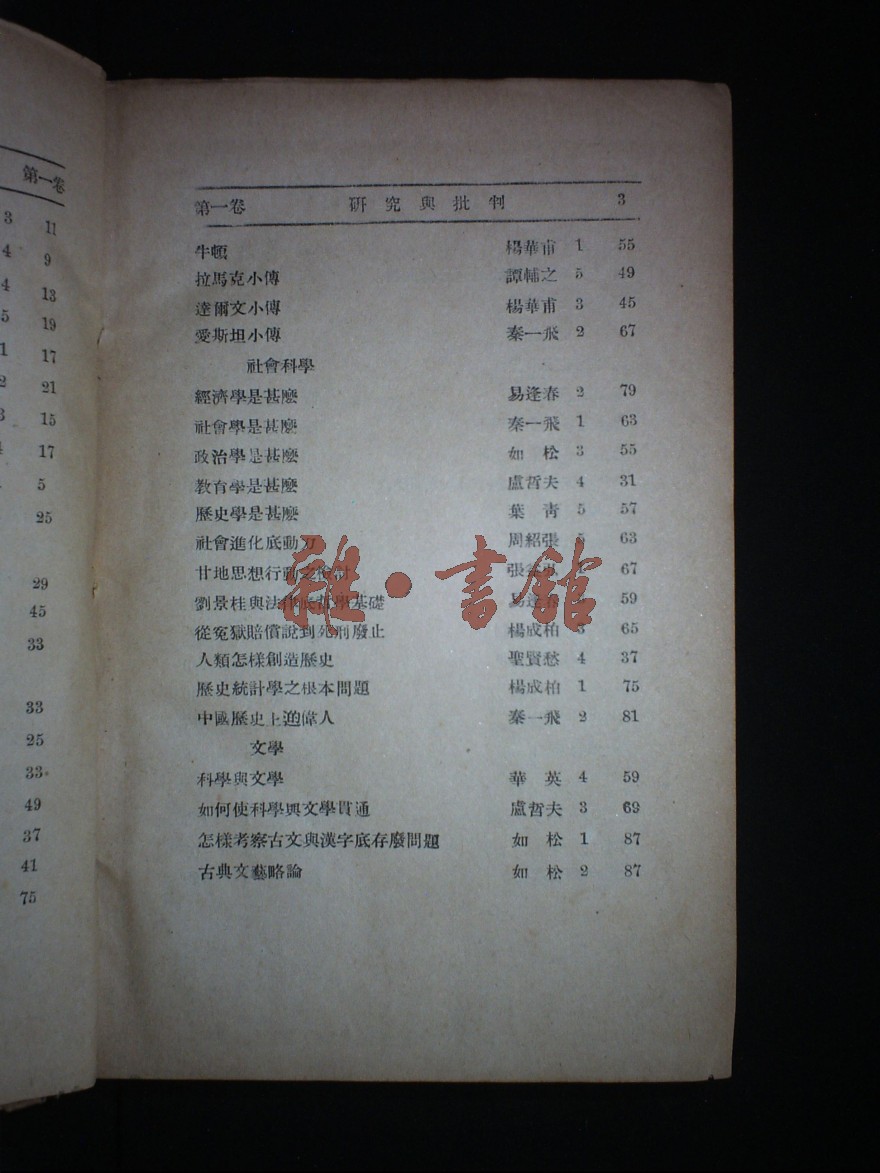 第一卷
3 11
4 9
4 13
5 19
1 17
2 21
3 15
4 17
5
25
29
45
33
33
25
33
49
37
41
75
第一卷 研究與批判 3
牛頓 楊華甫 1 55
拉馬克小傳 譚輔之 5 49
達爾文小傳 楊華甫 3 45
愛斯坦小傳 秦一飛 2 67
社會科學
經濟學是甚麼 易逢春 2 79
社會學是甚麼 秦一飛 1 63
政治學是甚麼 如松 3 55
教育學是甚麼 盧哲夫 4 31
歷史學是甚麼 葉青 5 57
社會進化底動力 周紹張 5 63
甘地思想行動之檢討 張 67
劉景桂與法律底哲學基礎 易逢春 59
從冤獄賠償說到死刑廢止 楊成柏 3 65
人類怎樣創造歷史 聖賢愁 4 37
歷史統計學之根本問題 楊成柏 1 75
中國歷史上的偉人 秦一飛 2 81
文學
科學與文學 華英 4 59
如何使科學與文學貫通 盧哲夫 3 69
怎樣考察古文與漢字底存廢問題 如松 1 87
古典文藝略論 如松 2 87
雜·書館